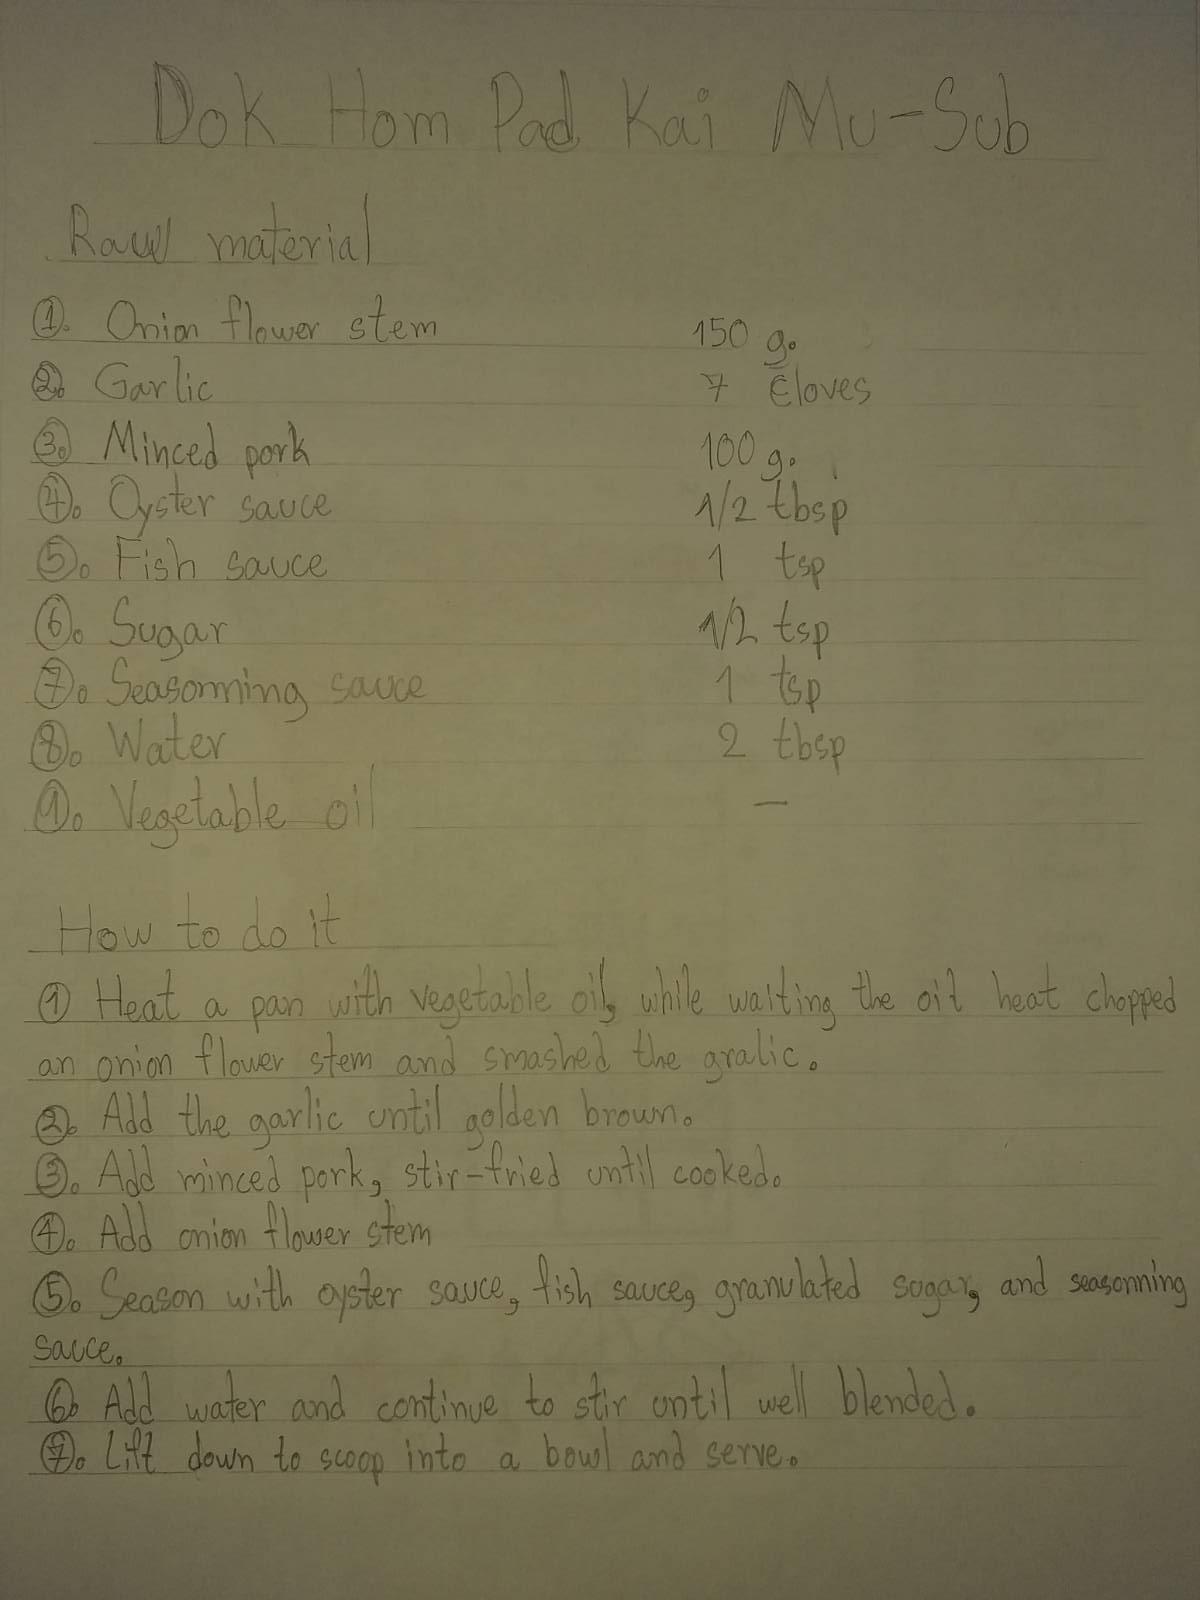 Dok Hom Pad Kai Mu-Sub
Raw material
1. Onion flower stem 150 g.
2. Garlic 7 Cloves
3. Minced pork 100 g.
4. Oyster sauce 1/2 tbsp
5. Fish sauce 1 tsp
6. Sugar 1/2 tsp
7. Seasonning sauce 1 tsp
8. Water 2 tbsp
9. Vegetable oil —
How to do it
1 Heat a pan with vegetable oil, while waiting the oil heat chopped
an onion flower stem and smashed the gralic.
2. Add the garlic until golden brown.
3. Add minced pork, stir-fried until cooked.
4. Add onion flower stem
5. Season with oyster sauce, fish sauce, granulated sugar, and seasonning
sauce.
6. Add water and continue to stir until well blended.
7. Lift down to scoop into a bowl and serve.